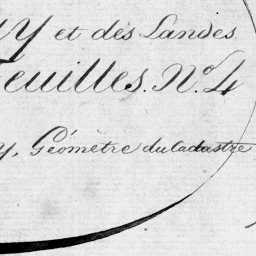 Y et des Landes
Feuilles. No. 4
y, Géomètre du Cadastre